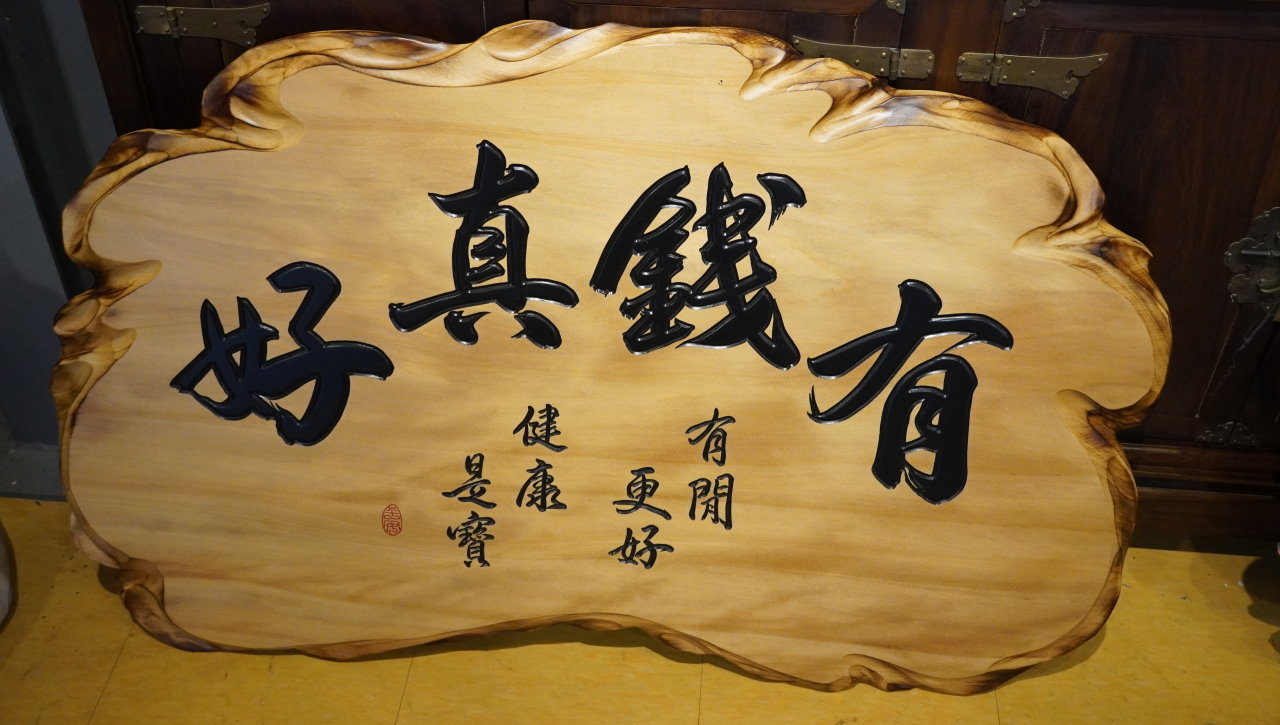 有錢真好
有閒
更好
健康
是寶